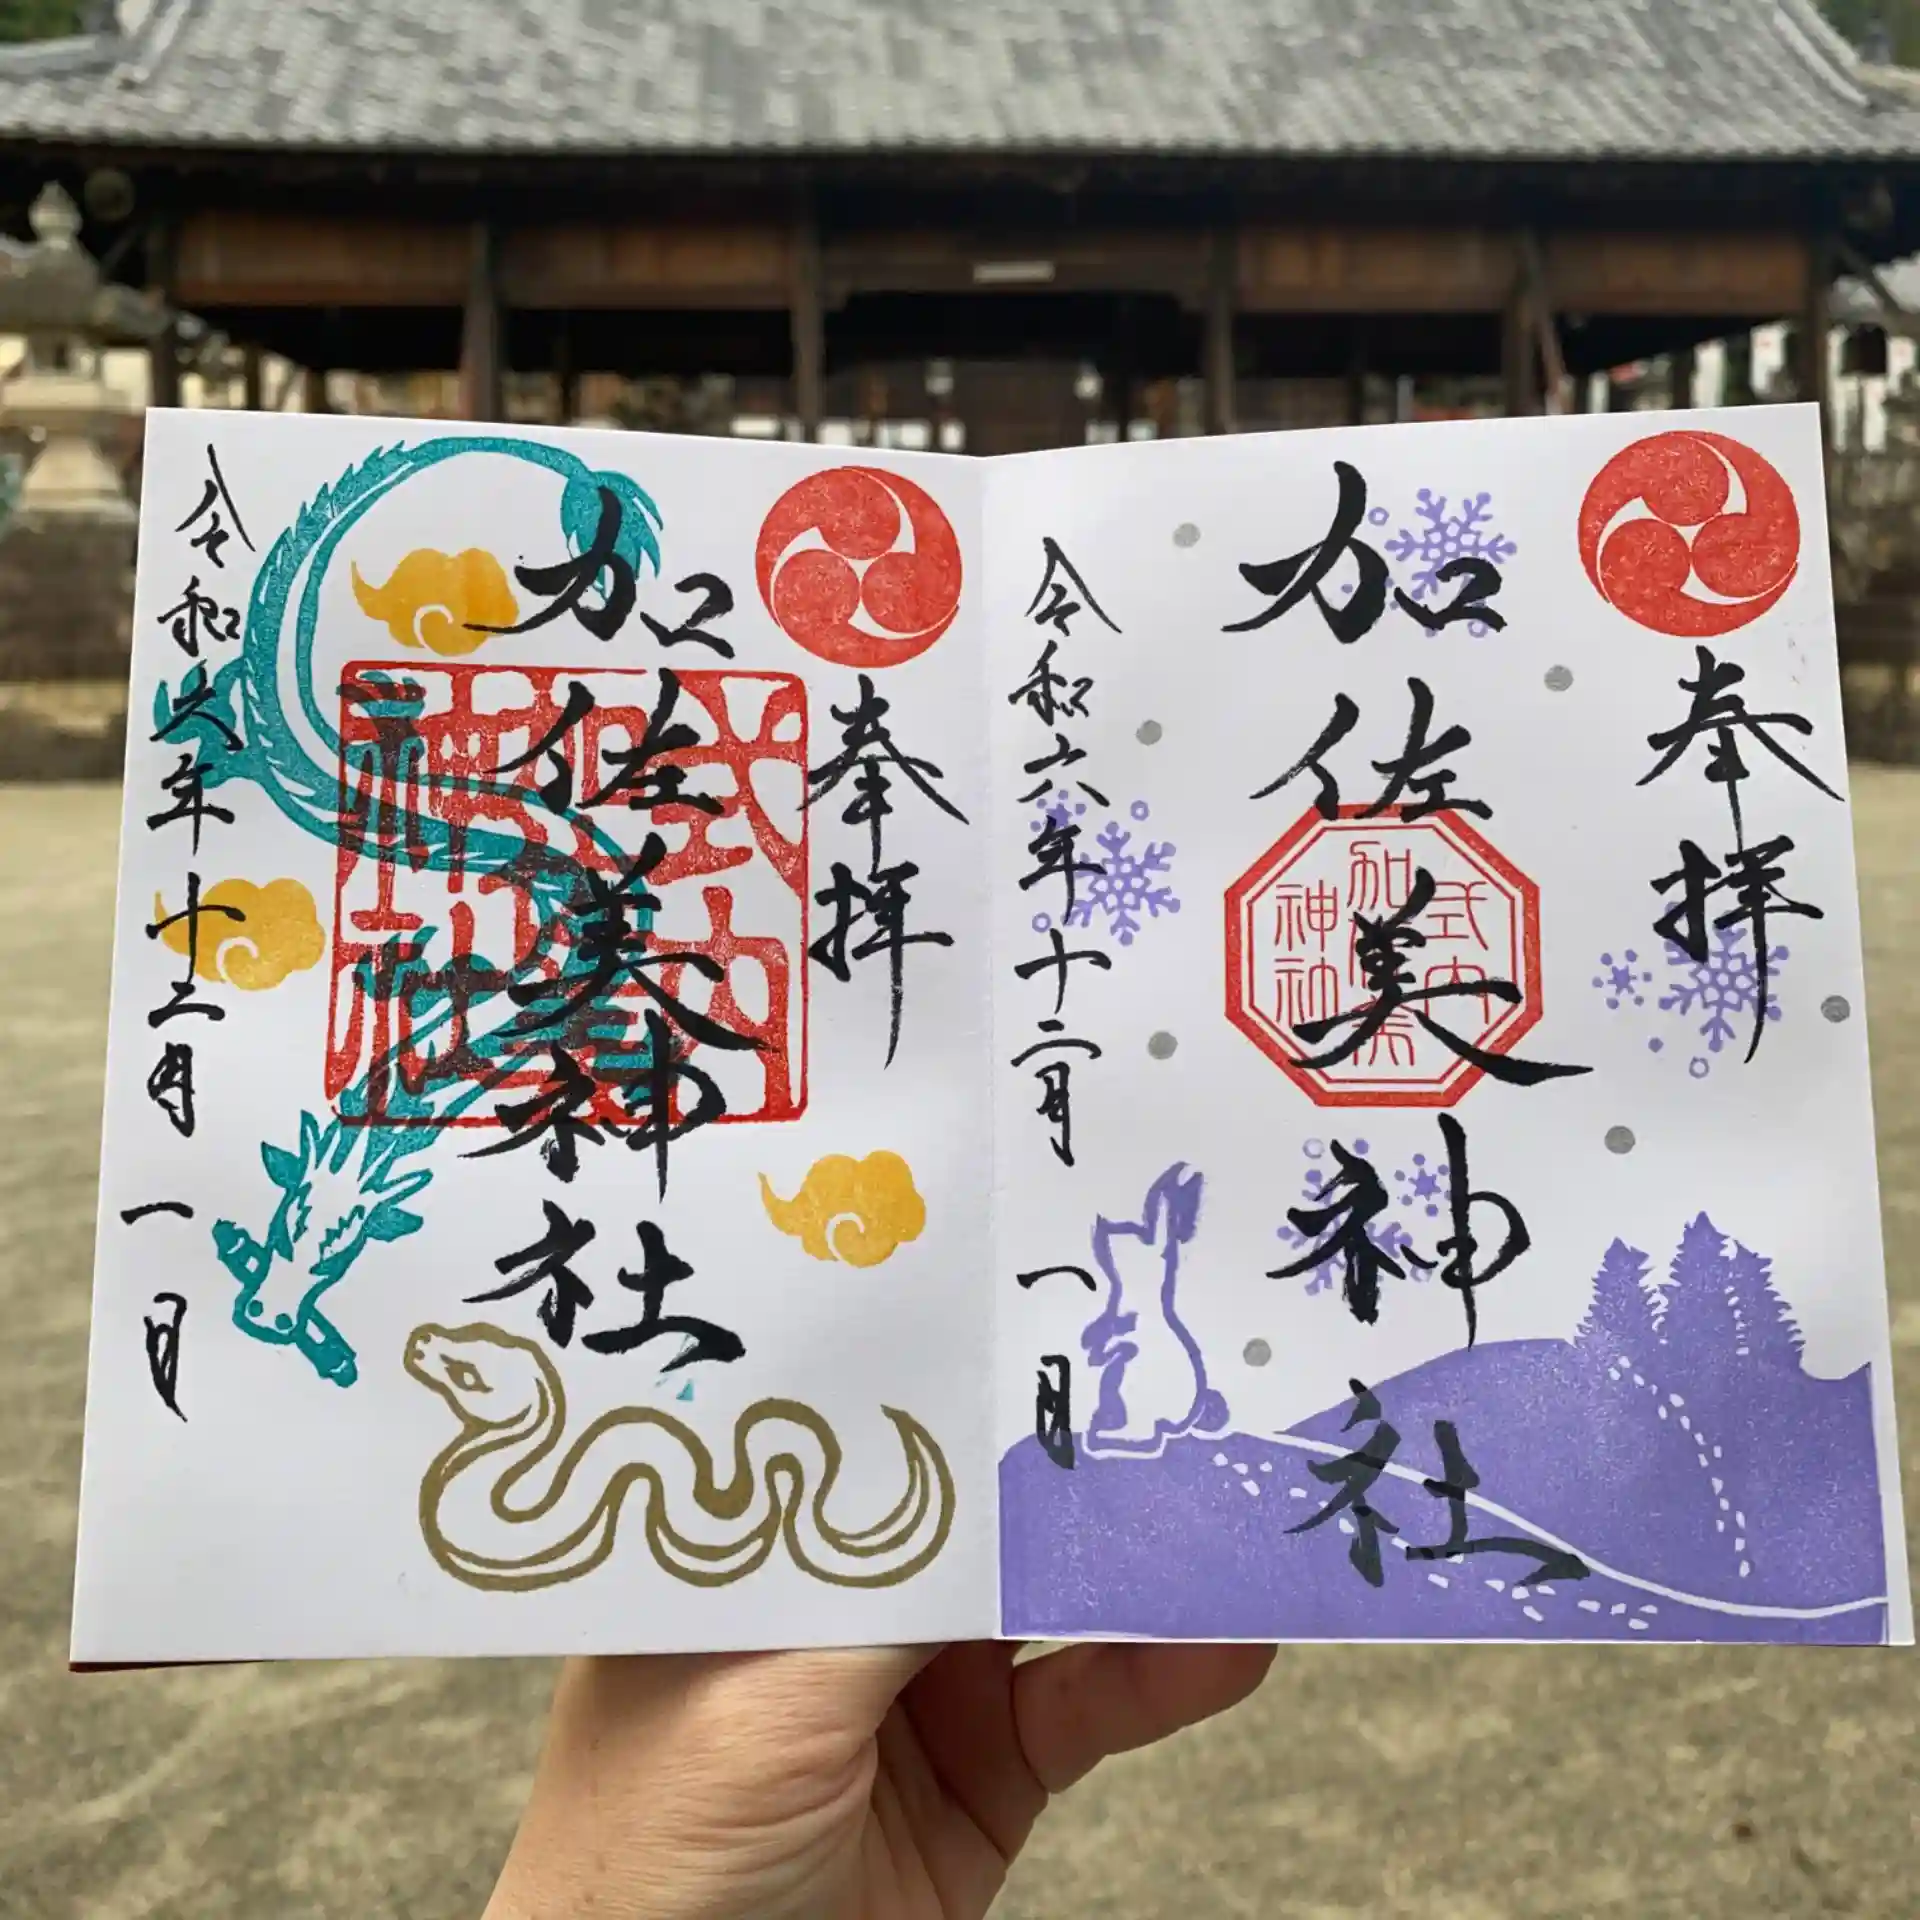 奉拝
加佐美神社
令和六年十二月一日
式内
加佐美
神社
奉拝
加佐美神社
令和六年十二月一日
式内
神社